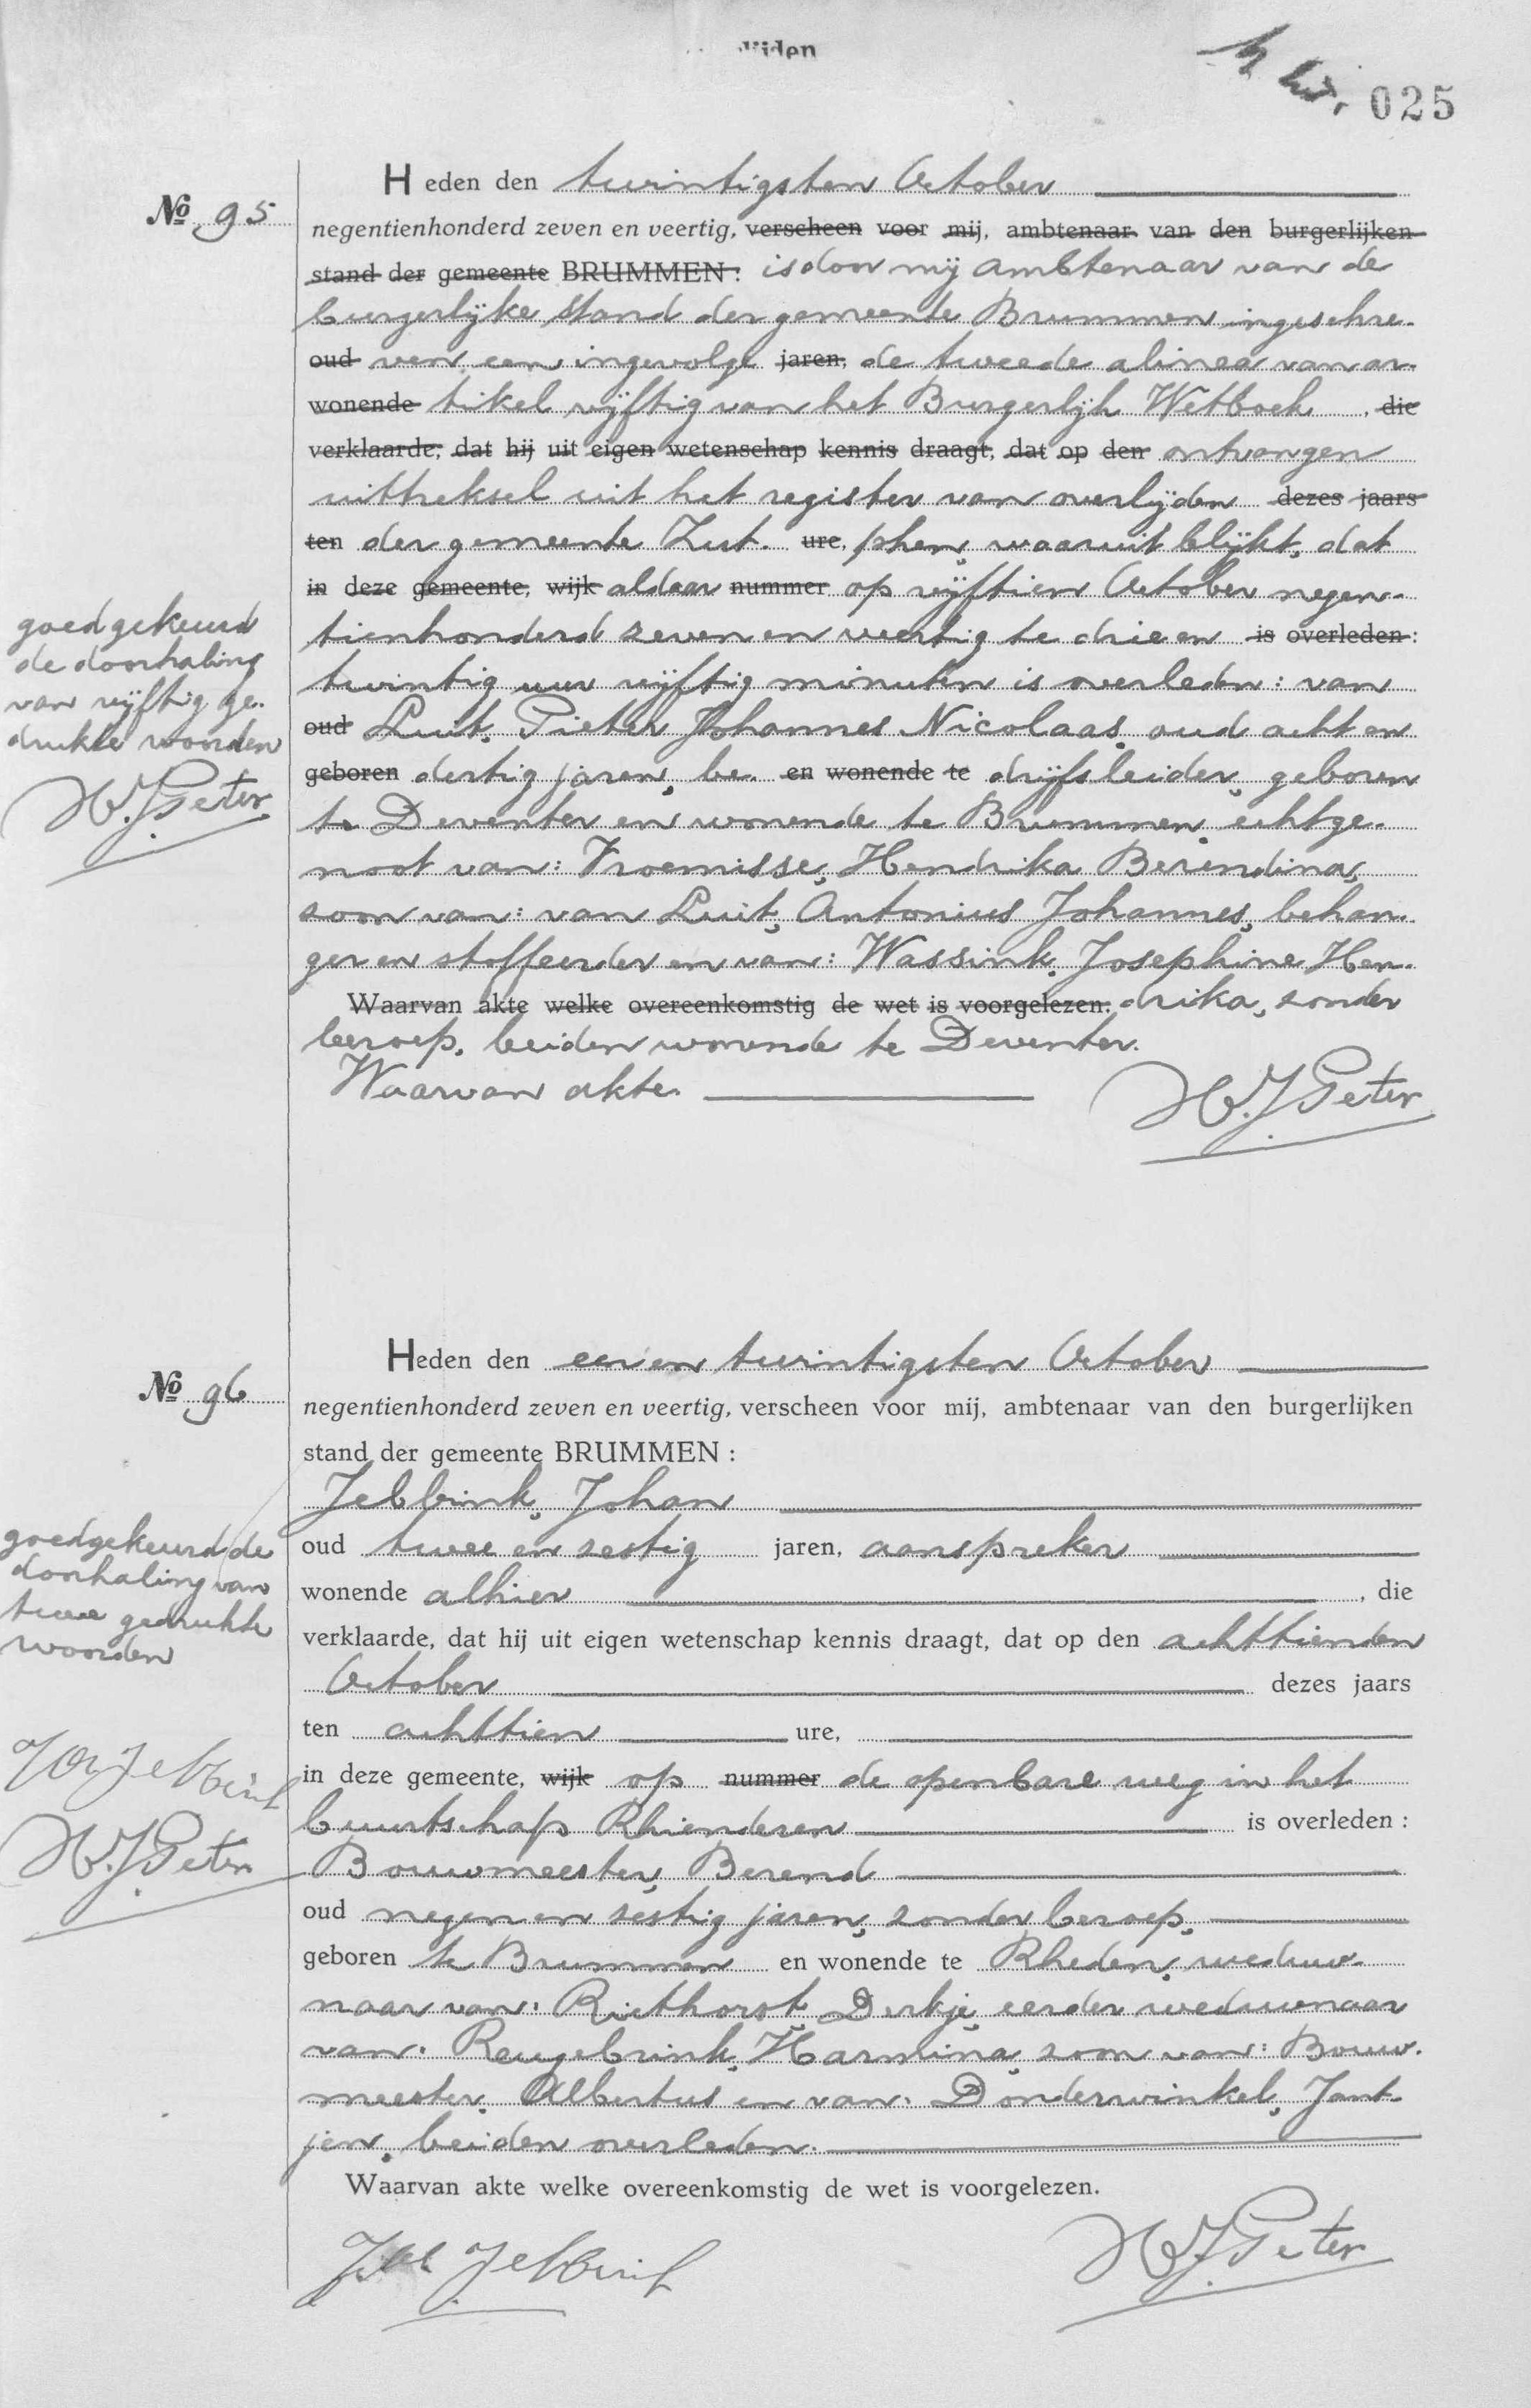 025
Heden den twintigsten October
No 95
negentienhonderd zeven en veertig, verscheen voor mij, ambtenaar van den burgerlijken
stand der gemeente BRUMMEN: is door mij ambtenaar van de
burgerlijke stand der gemeente Brummen ingeschre-
oud ven een ingevolge jaren, de tweede alinea van ar-
wonende tikel vijftig van het Burgerlijk Wetboek, die
verklaarde, dat hij uit eigen wetenschap kennis draagt, dat op den ontvangen
uittreksel uit het register van overlijden dezes jaars
ten der gemeente Zut- ure, phen, waaruit blijkt, dat
in deze gemeente, wijk aldaar nummer op vijftien October negen-
tienhonderd zeven en veertig te drie en is overleden:
twintig uur vijftig minuten is overleden: van
oud Luit, Pieter Johannes Nicolaas, oud acht en
geboren dertig jaren, be- en wonende te drijfsleider, geboren
te Deventer en wonende te Brummen, echtge-
noot van: Vroemisse, Hendrika Berendina,
zoon van: van Luit, Antonius Johannes, behan-
ger en stoffeerder en van: Wassink, Josephine Hen-
Waarvan akte welke overeenkomstig de wet is voorgelezen. drika, zonder
beroep, beiden wonende te Deventer.
Waarvan akte.
H.J. Peter
goedgekeurd
de doorhaling
van vijftig ge-
drukte woorden
H.J. Peter
Heden den een en twintigsten October
No 96
negentienhonderd zeven en veertig, verscheen voor mij, ambtenaar van den burgerlijken
stand der gemeente BRUMMEN:
Jebbink, Johan
oud twee en zestig jaren, aanspreker
wonende alhier, die
verklaarde, dat hij uit eigen wetenschap kennis draagt, dat op den achttienden
October dezes jaars
ten achttien ure,
in deze gemeente, wijk op nummer de openbare weg in het
buurtschap Rhienderen is overleden:
Bouwmeester, Berend
oud negen en zestig jaren, zonder beroep,
geboren te Brummen en wonende te Rheden, weduw-
naar van: Riethorst, Derkje, eerder weduwnaar
van: Reugebrink, Harmina, zoon van: Bouw-
meester, Albertus en van: Donderwinkel, Jant-
jen, beiden overleden.
Waarvan akte welke overeenkomstig de wet is voorgelezen.
Joh Jebbink
H.J. Peter
goedgekeurd de
doorhaling van
twee gedrukte
woorden
Joh Jebbink
H.J. Peter